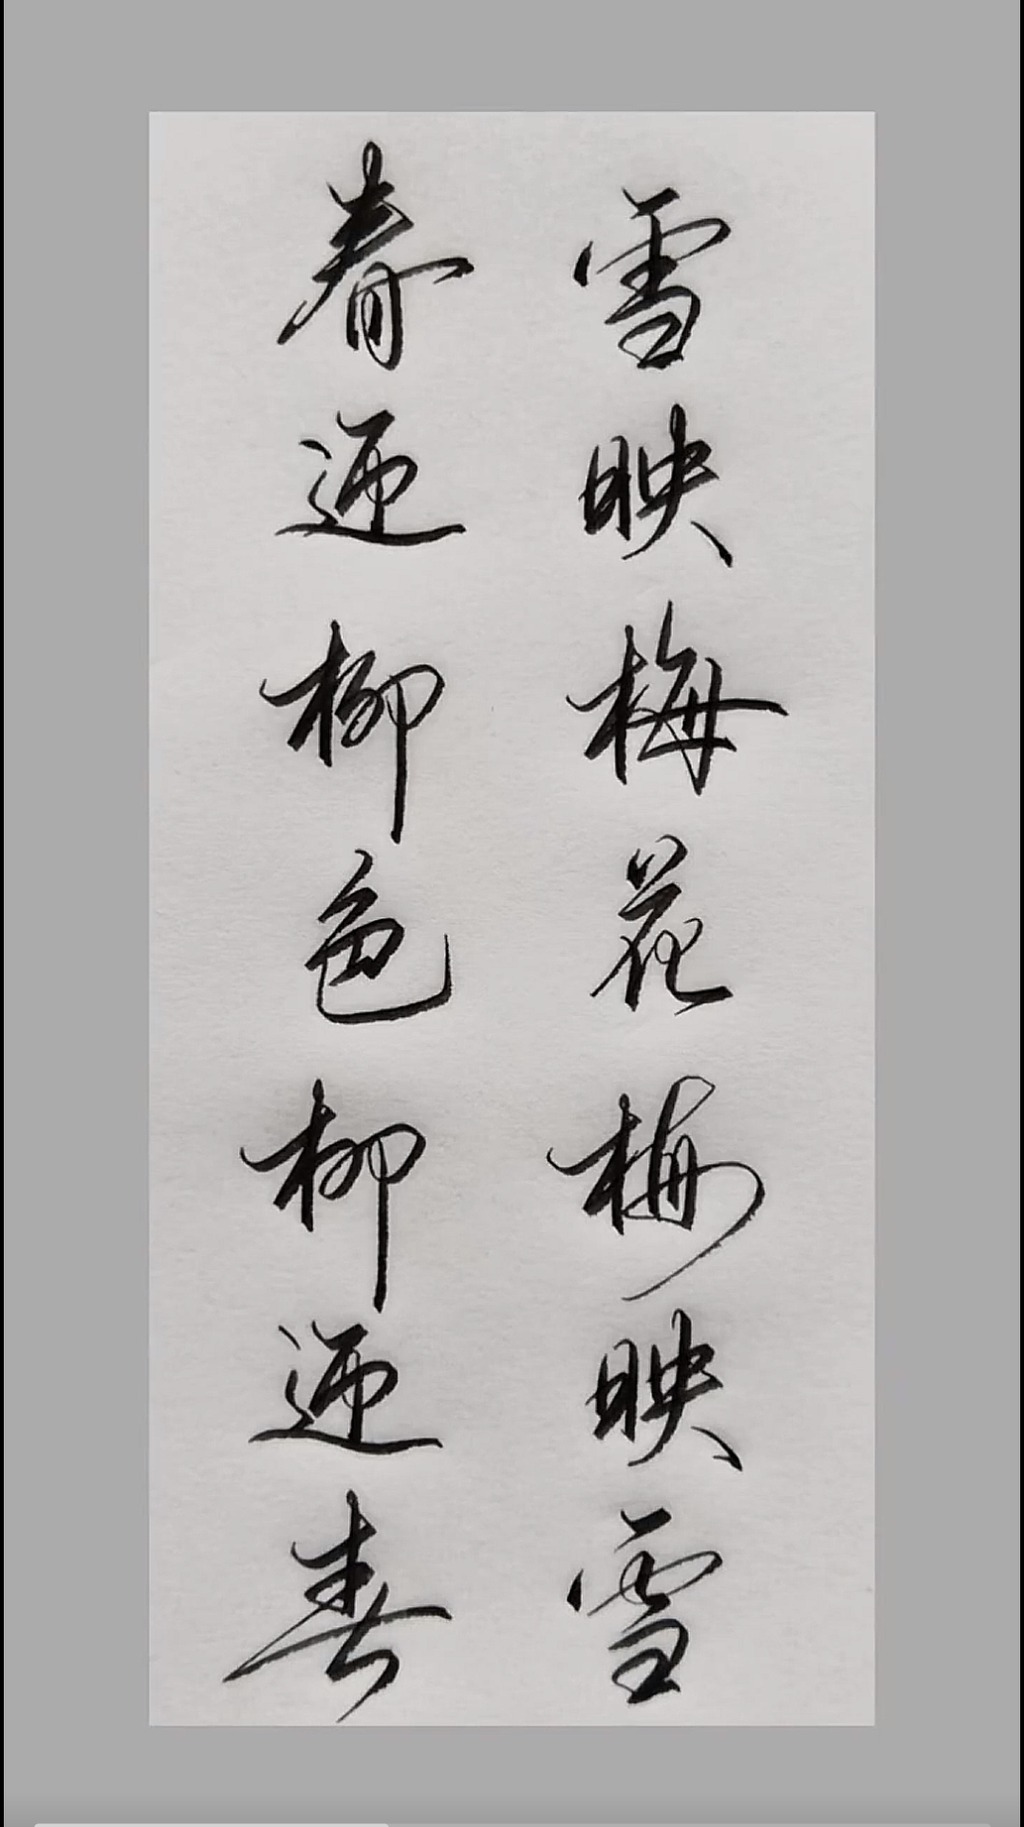 雪映梅花梅映雪
春迎柳色柳迎春